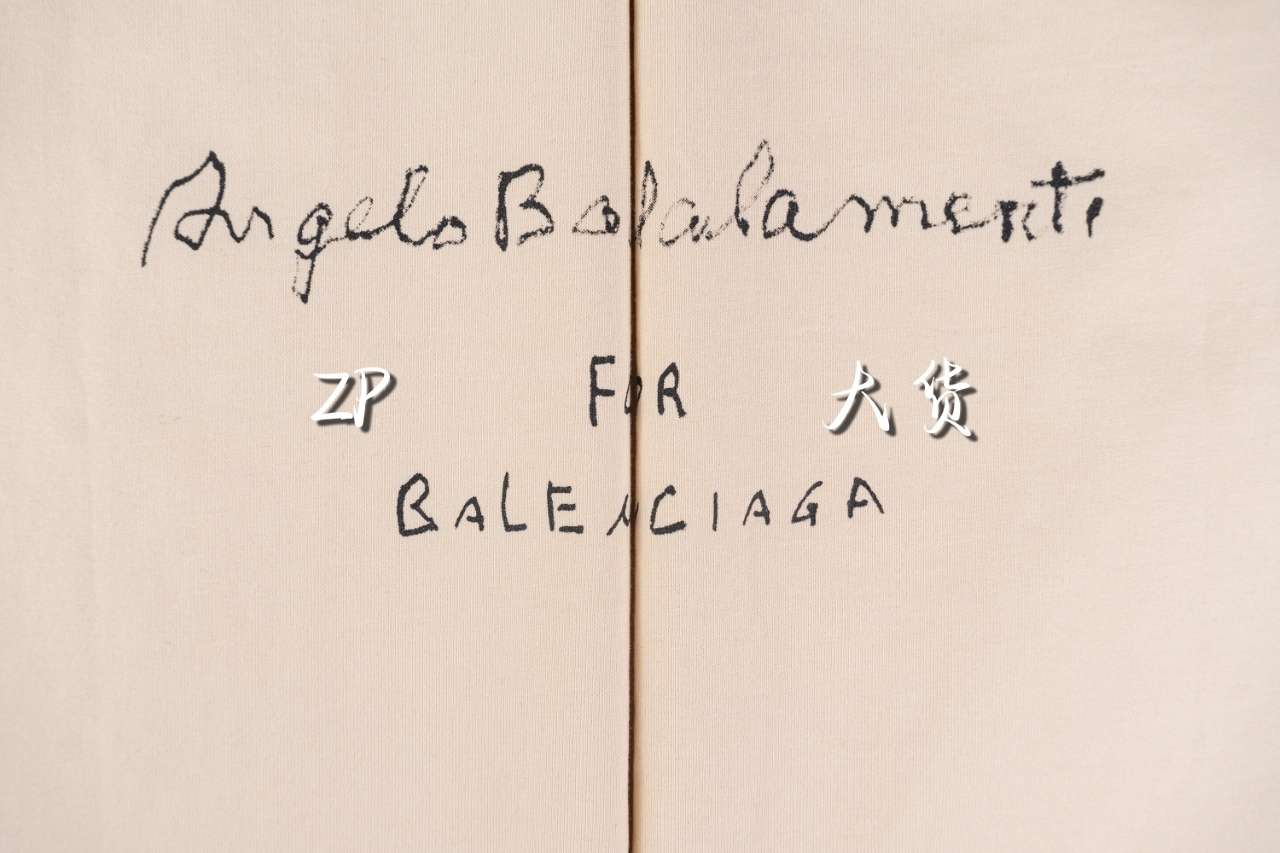 Angelo Badalamenti
ZP FOR 大货
BALENCIAGA